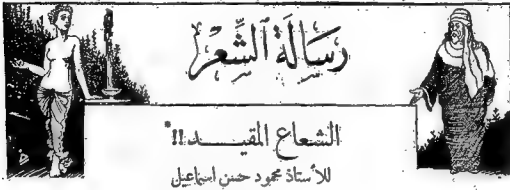 رسالة الشعر
الشعاع المقيد !!
للأستاذ محمود حسن اسماعيل